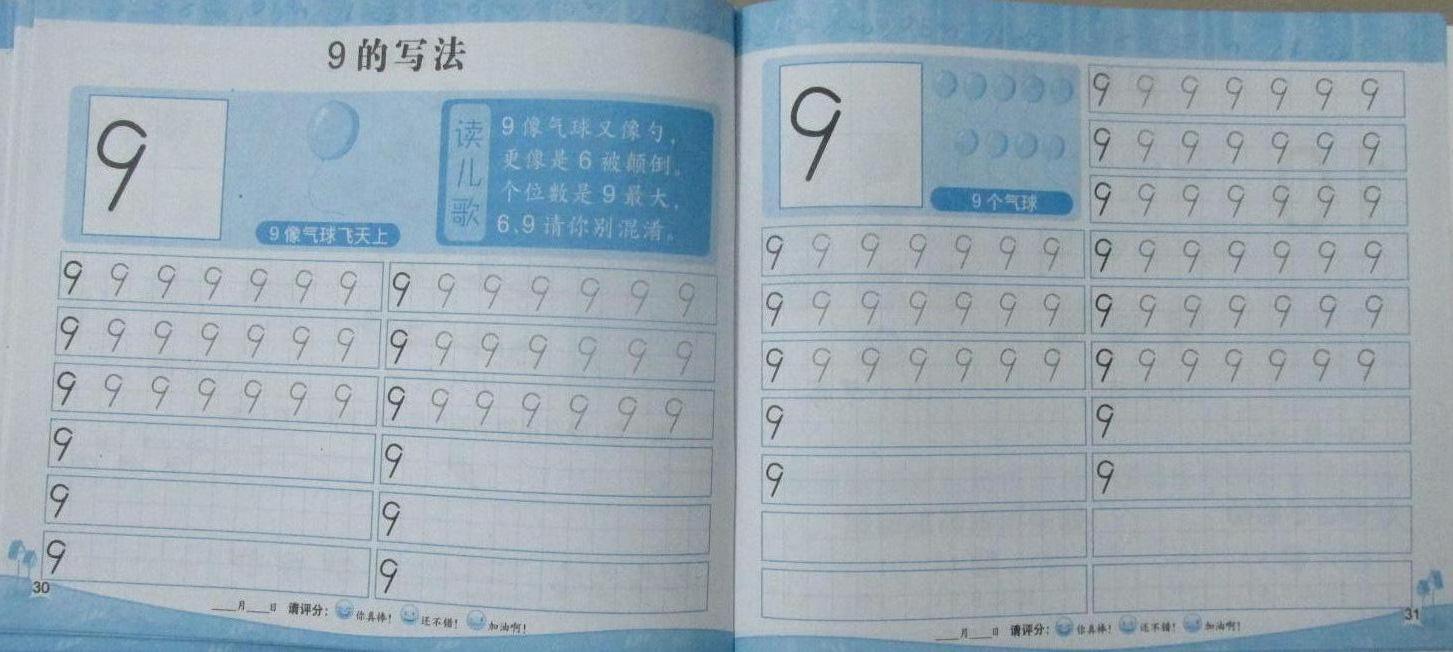 9的写法
9
读儿歌
9像气球又像勺,
更像是6被颠倒。
个位数是9最大,
6、9请你别混淆。
9像气球飞天上
9 9 9 9 9 9 9
9 9 9 9 9 9 9
9 9 9 9 9 9 9
9 9 9 9 9 9 9
9 9 9 9 9 9 9
9 9 9 9 9 9 9
9
9
9
9
9
9
30
____月____日 请评分: 你真棒! 还不错! 加油啊!
9
9个气球
9 9 9 9 9 9 9
9 9 9 9 9 9 9
9 9 9 9 9 9 9
9 9 9 9 9 9 9
9 9 9 9 9 9 9
9 9 9 9 9 9 9
9 9 9 9 9 9 9
9 9 9 9 9 9 9
9 9 9 9 9 9 9
9
9
9
9
____月____日 请评分: 你真棒! 还不错! 加油啊!
31